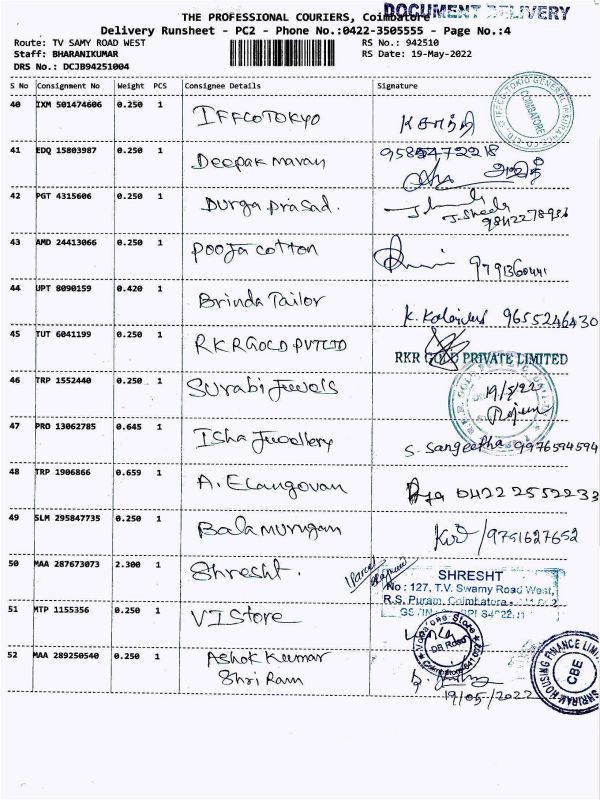 DOCUMENT DELIVERY
THE PROFESSIONAL COURIERS, Coimbatore
Delivery Runsheet - PC2 - Phone No.:0422-3505555 - Page No.:4
Route: TV SAMY ROAD WEST RS No.: 942510
Staff: BHARANIKUMAR RS Date: 19-May-2022
DRS No.: DCJB94251004
S No Consignment No Weight PCS Consignee Details Signature
40 IXM 501474606 0.250 1 IFFCOTOKYO
COIMBATORE
41 EDQ 15803987 0.250 1 Deepak maran
42 PGT 4315606 0.250 1 Durga prasad. J. Sheela
43 AMD 24413066 0.250 1 Pooja cotton 9791360441
44 UPT 8090159 0.420 1 Brinda Tailor
K. 9655246430
45 TUT 6041199 0.250 1 RKR GOLD PVT LTD
RKR GOLD PRIVATE LIMITED
46 TRP 1552440 0.250 1 Surabi Jewels 19/5/22
47 PRO 13062785 0.645 1 Isha Jwollery S. Sangeetha 9976594594
48 TRP 1906866 0.659 1 A. Elangovan 0422 2552233
49 SLM 295847735 0.250 1 Balamurugan 9751627652
50 MAA 287673073 2.300 1 Shresht.
SHRESHT
No : 127, T.V. Swamy Road West,
R.S. Puram, Coimbatore
51 MTP 1155356 0.250 1 VI Store
DB Road
52 MAA 289250540 0.250 1 Ashok Kumar
Shri Ram
SHRIRAM HOUSING FINANCE LIM
CBE
19/05/2022